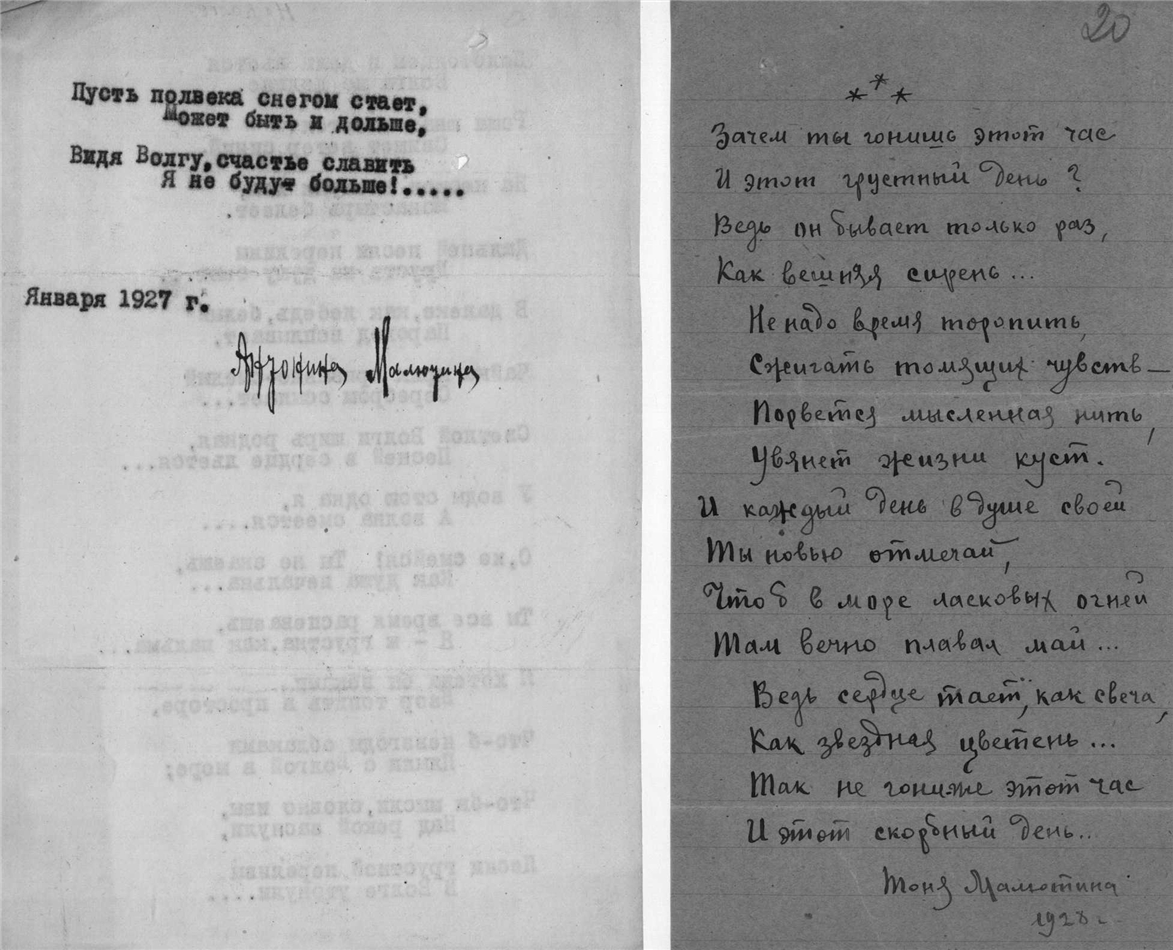 Пусть полвека снегом стает,
Может быть и дольше,
Видя Волгу, счастье славить
Я не буду больше!.....
Января 1927 г.
Антонина Малютина
20
***
Зачем ты гонишь этот час
И этот грустный день?
Ведь он бывает только раз,
Как вешняя сирень...
Не надо время торопить,
Сжигать томящих чувств —
Порвется мысленная нить,
Увянет жизни куст.
И каждый день в душе своей
Ты новью отмечай,
Чтоб в море ласковых огней
Там вечно плавал май...
Ведь сердце тает, как свеча,
Как звездная цветень...
Так не гони же этот час
И этот скорбный день...
Тоня Малютина
1928 г.